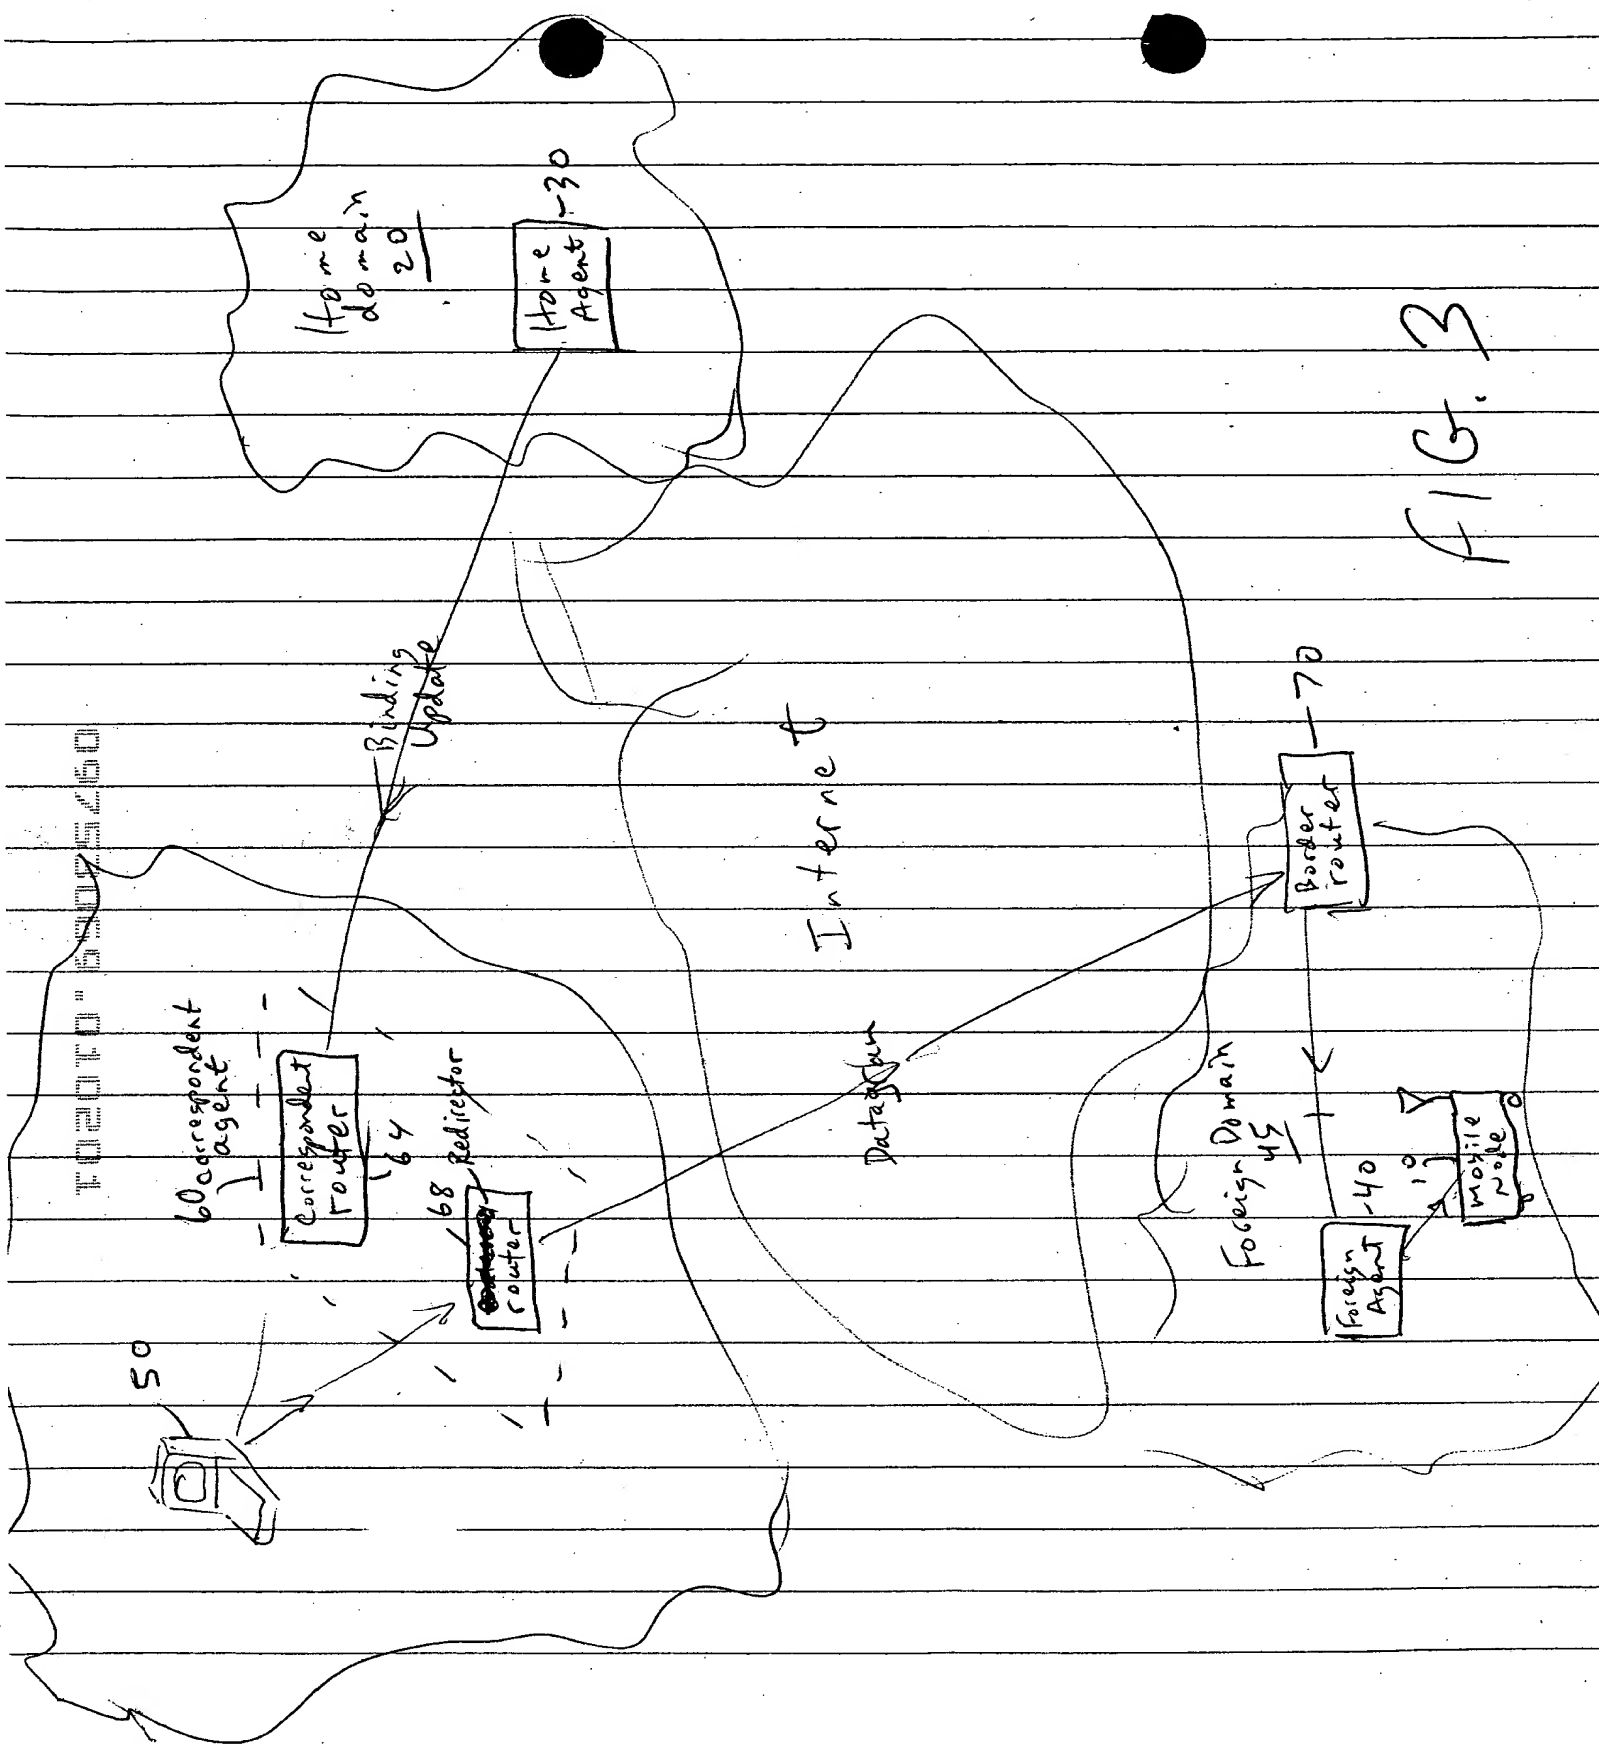 50
60 correspondent
agent
Correspondent
router
64
68
Redirector
router
Binding
Update
Home
domain
20
Home
Agent
30
Internet
Datagram
Foreign Domain
45
Border
router
70
Foreign
Agent
40
10
Mobile
Node
FIG. 3